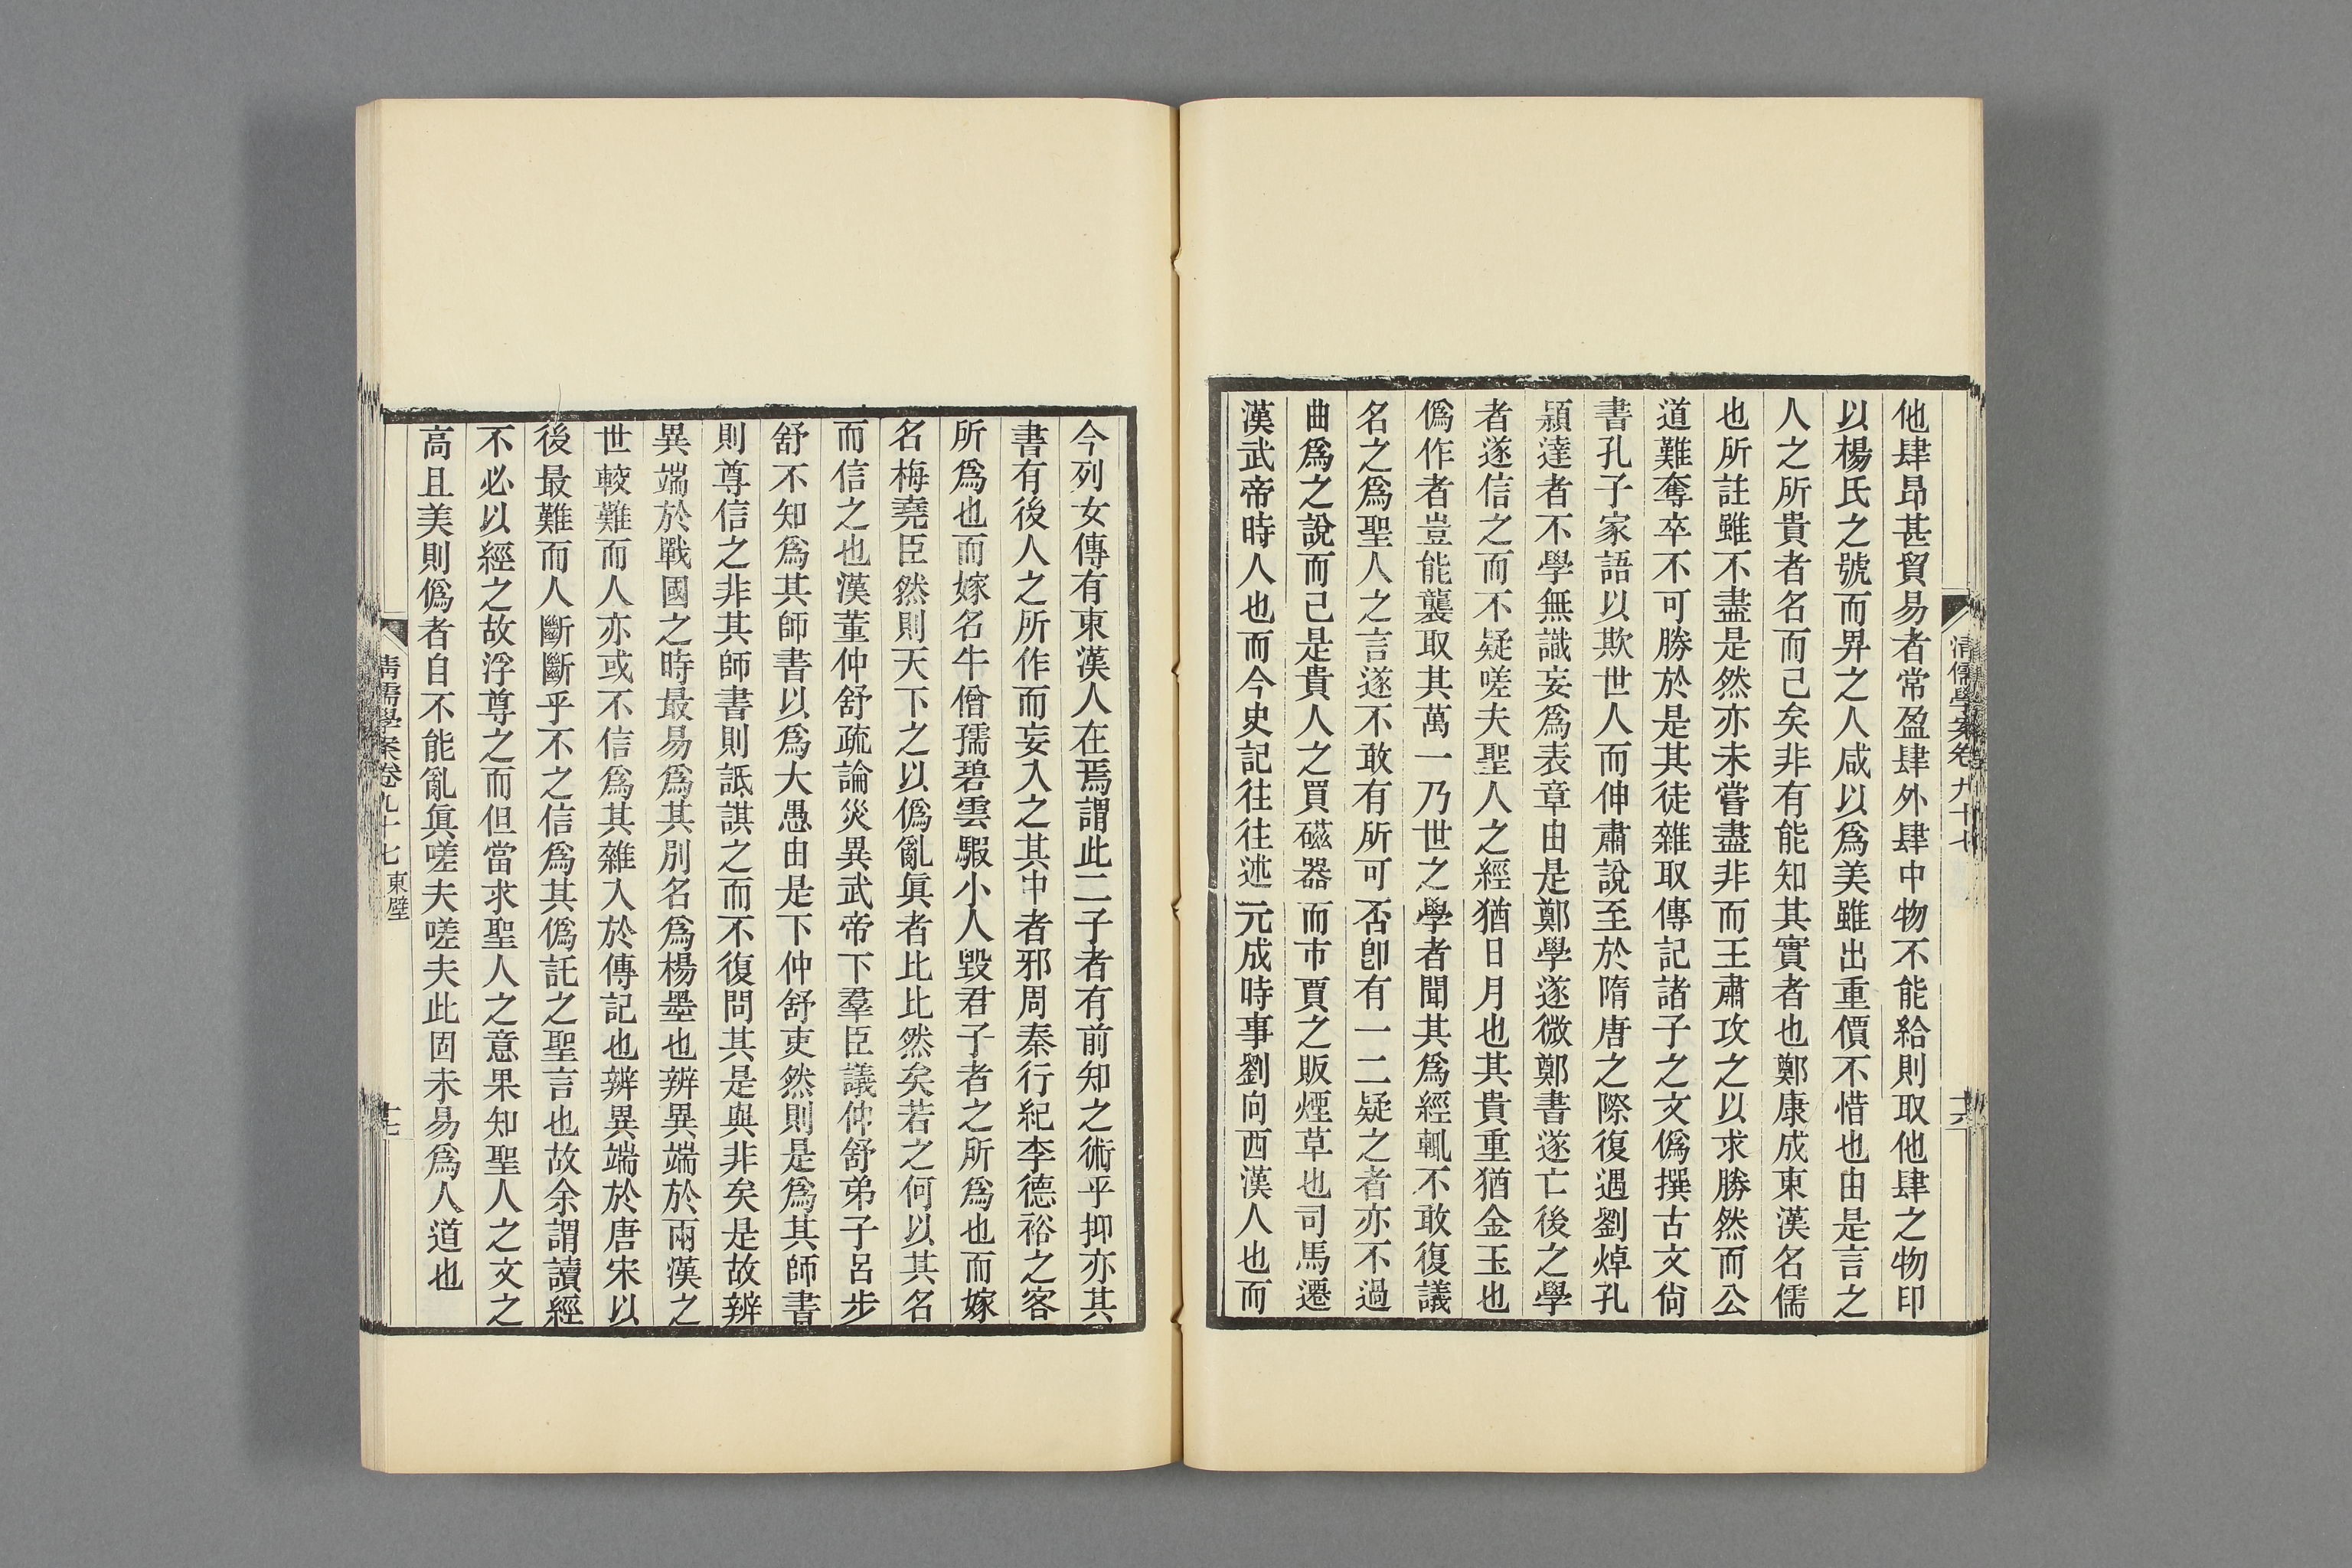 清儒學案卷九十七
十六
他肆昂甚貿易者常盈肆外肆中物不能給則取他肆之物印
以楊氏之號而畀之人咸以爲美雖出重價不惜也由是言之
人之所貴者名而已矣非有能知其實者也鄭康成東漢名儒
也所註雖不盡是然亦未嘗盡非而王肅攻之以求勝然而公
道難奪卒不可勝於是其徒雜取傳記諸子之文僞撰古文尙
書孔子家語以欺世人而伸肅說至於隋唐之際復遇劉焯孔
潁達者不學無識妄爲表章由是鄭學遂微鄭書遂亡後之學
者遂信之而不疑嗟夫聖人之經猶日月也其貴重猶金玉也
僞作者豈能襲取其萬一乃世之學者聞其爲經輒不敢復議
名之爲聖人之言遂不敢有所可否卽有一二疑之者亦不過
曲爲之說而已是貴人之買磁器而市賈之販煙草也司馬遷
漢武帝時人也而今史記往往述元成時事劉向西漢人也而
今列女傳有東漢人在焉謂此二子者有前知之術乎抑亦其
書有後人之所作而妄入之其中者邪周秦行紀李德裕之客
所爲也而嫁名牛僧孺碧雲騢小人毀君子者之所爲也而嫁
名梅堯臣然則天下之以僞亂眞者比比然矣若之何以其名
而信之也漢董仲舒疏論災異武帝下羣臣議仲舒弟子呂步
舒不知爲其師書以爲大愚由是下仲舒吏然則是爲其師書
則尊信之非其師書則詆諆之而不復問其是與非矣是故辨
異端於戰國之時最易爲其別名爲楊墨也辨異端於兩漢之
世較難而人亦或不信爲其雜入於傳記也辨異端於唐宋以
後最難而人斷斷乎不之信爲其僞託之聖言也故余謂讀經
不必以經之故浮尊之而但當求聖人之意果知聖人之文之
高且美則僞者自不能亂眞嗟夫嗟夫此固未易爲人道也
清儒學案卷九十七 東壁
十七